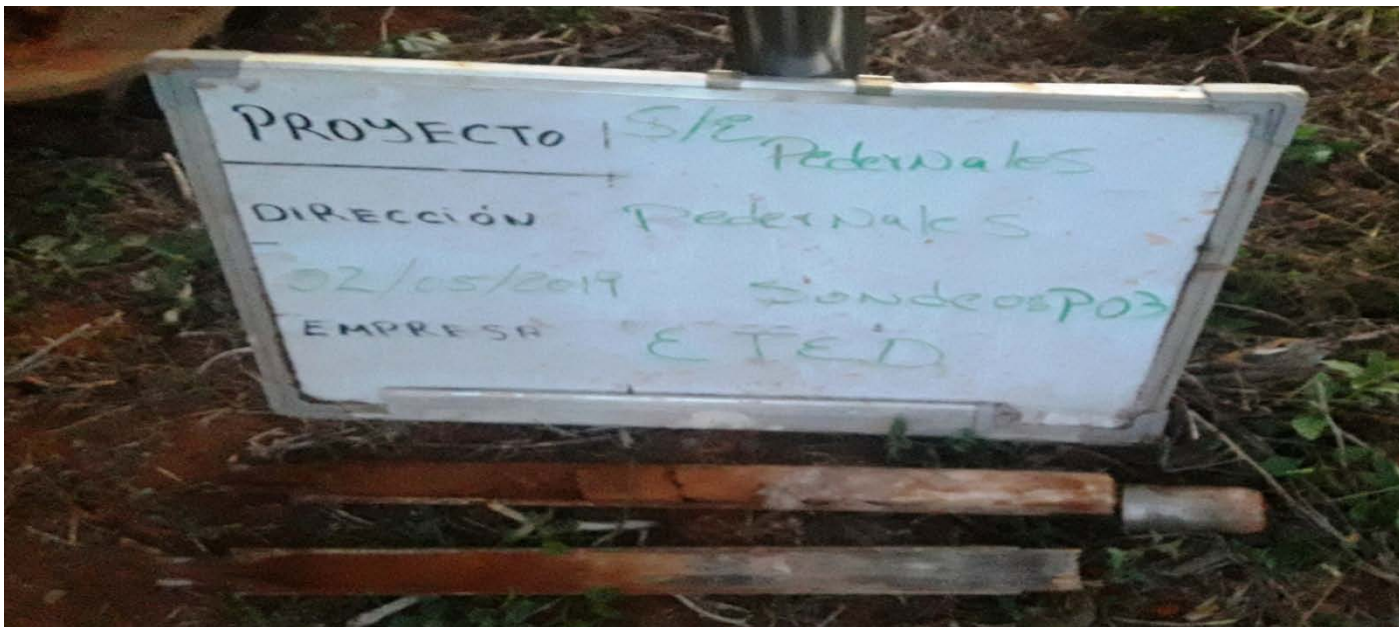 PROYECTO S/E Pedernales
DIRECCIÓN Pedernales
02/05/2019 SondeosP03
EMPRESA ETED